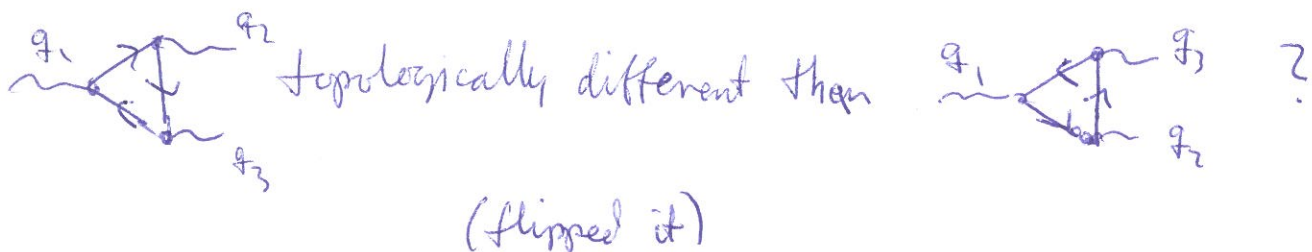 q₁ q₂ topologically different than q₁ q₃ ?
q₃ q₂
(flipped it)